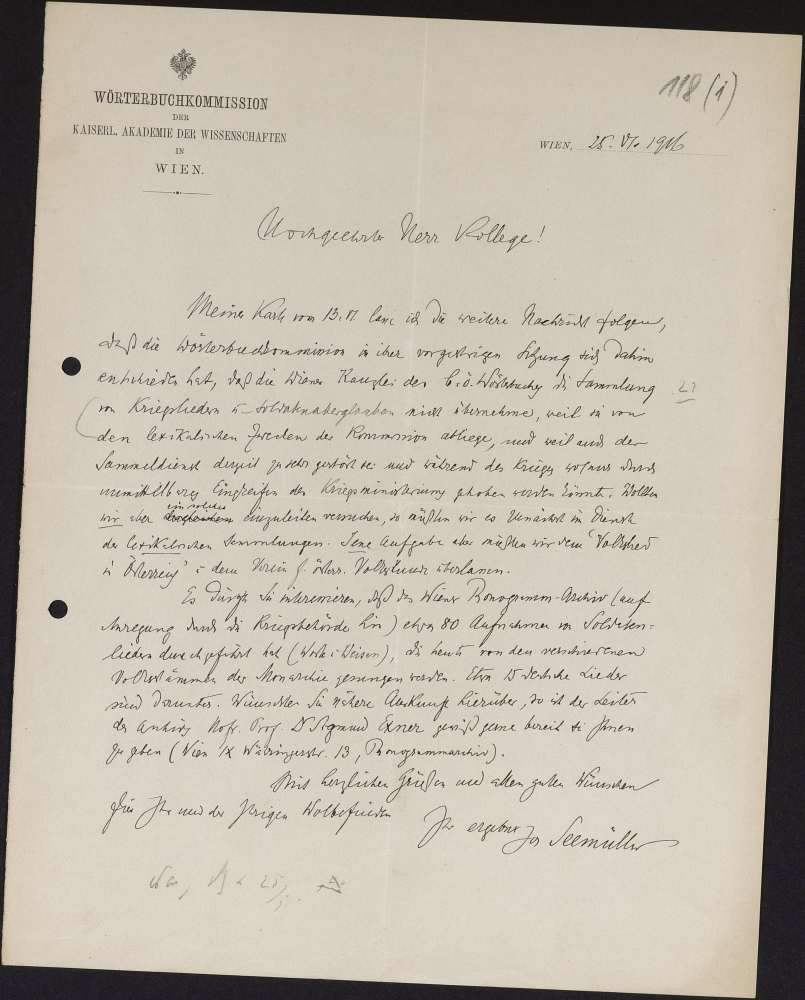 118 (1)
WÖRTERBUCHKOMMISSION
DER
KAISERL. AKADEMIE DER WISSENSCHAFTEN
IN
WIEN.
WIEN, 25. VI. 1916
Hochgeehrter Herr Kollege!
Meiner Karte vom 13. VI lasse ich die weitere Nachricht folgen,
daß die Wörterbuchkommission in ihrer vorgestrigen Sitzung sich dahin
entschieden hat, daß die Wiener Kanzlei des b.-ö. Wörterbuches die Sammlung
von Kriegsliedern u. Soldatenaberglauben nicht übernehme, weil sie von
den lexikalischen Zwecken der Kommission abliege, und weil auch der
Sammeldienst derzeit zu sehr gestört sei und während des Krieges nur durch
unmittelbares Eingreifen des Kriegsministeriums gehoben werden könnte. Wollten
wir aber ein solches einzuleiten versuchen, so müßten wir es zunächst im Dienste
der lexikalischen Sammlungen. Jene Aufgabe aber müßten wir dem "Volkslied
in Österreich" u. dem Verein f. österr. Volkskunde überlassen.
Es dürfte Sie interessieren, daß das Wiener Phonogramm-Archiv (auf
Anregung durch die Kriegsbehörde hin) etwa 80 Aufnahmen von Soldaten-
liedern durchgeführt hat (Worte u. Weisen), die heute von den verschiedenen
Volksstämmen der Monarchie gesungen werden. Etwa 15 deutsche Lieder
sind darunter. Wünschten Sie nähere Auskunft hierüber, so ist der Leiter
des Archivs Hofr. Prof. Dr Sigmund Exner gewiß gerne bereit sie Ihnen
zu geben (Wien IX Währingerstr. 13, Phonogrammarchiv).
Mit herzlichen Grüßen und allen guten Wünschen
für Ihr und der Ihrigen Wolbefinden
Ihr ergebner Jos Seemüller